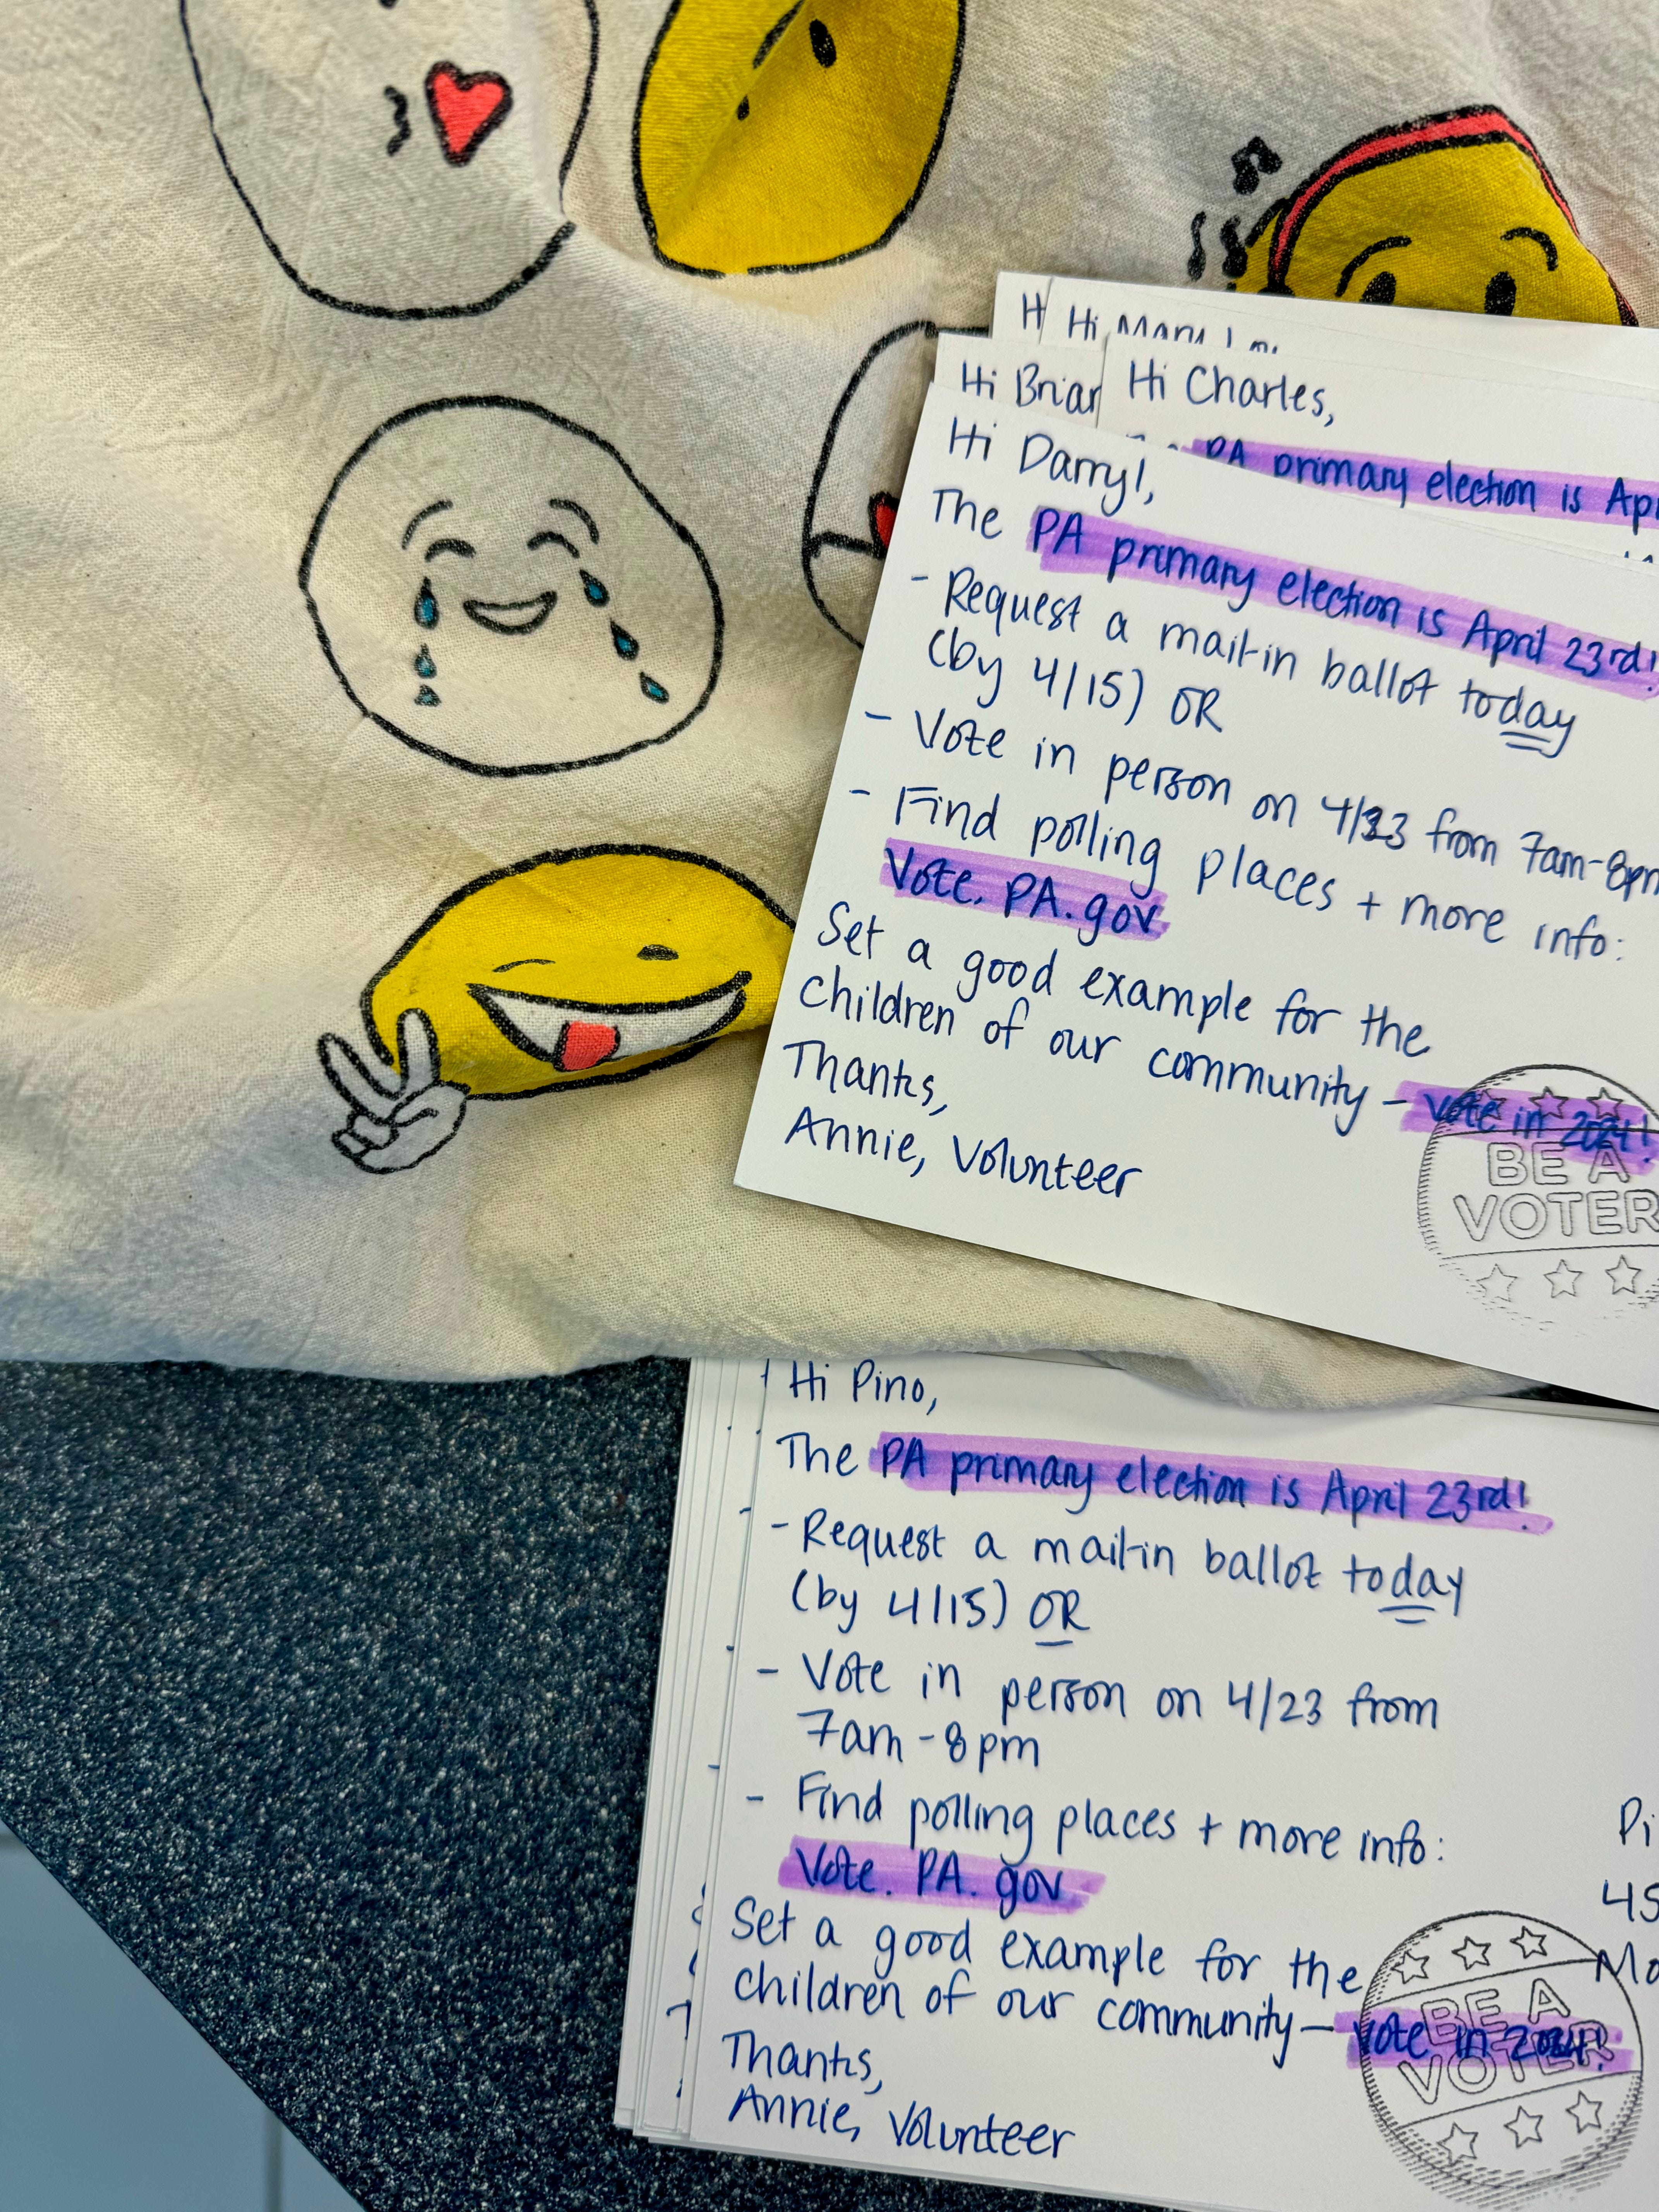 Hi Mary
Hi Brian
Hi Charles,
PA primary election is Apri
Hi Darryl,
The PA primary election is April 23rd!
- Request a mail-in ballot today
(by 4/15) OR
- Vote in person on 4/23 from 7am-8pm
- Find polling places + more info:
Vote.PA.gov
Set a good example for the
children of our community - vote in 2024!
Thanks,
Annie, Volunteer
BE A
VOTER
Hi Pino,
The PA primary election is April 23rd!
- Request a mail-in ballot today
(by 4/15) OR
- Vote in person on 4/23 from
7am-8pm
- Find polling places + more info:
Vote.PA.gov
Set a good example for the
children of our community - vote in 2024!
Thanks,
Annie, Volunteer
Pi
45
Mo
BE A
VOTER